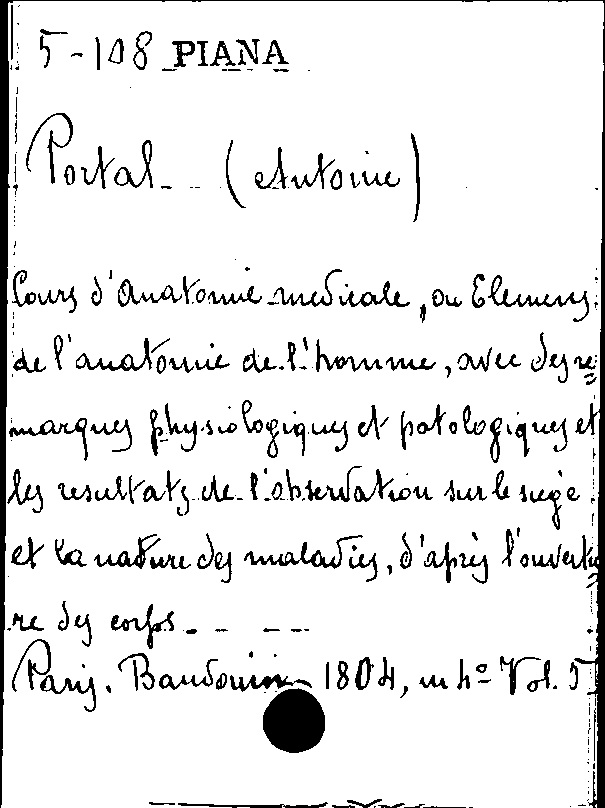 5-108 PIANA
Portal (Antoine)
Cours d'Anatomie medicale, ou Elemens
de l'anatomie de l'homme, avec des re=
marques physiologiques et patologiques et
les resultats de l'observation sur le siege
et la nature des maladies, d'après l'ouvertu=
re des corps
Paris. Baudouin 1804, in 4º Vol. 5